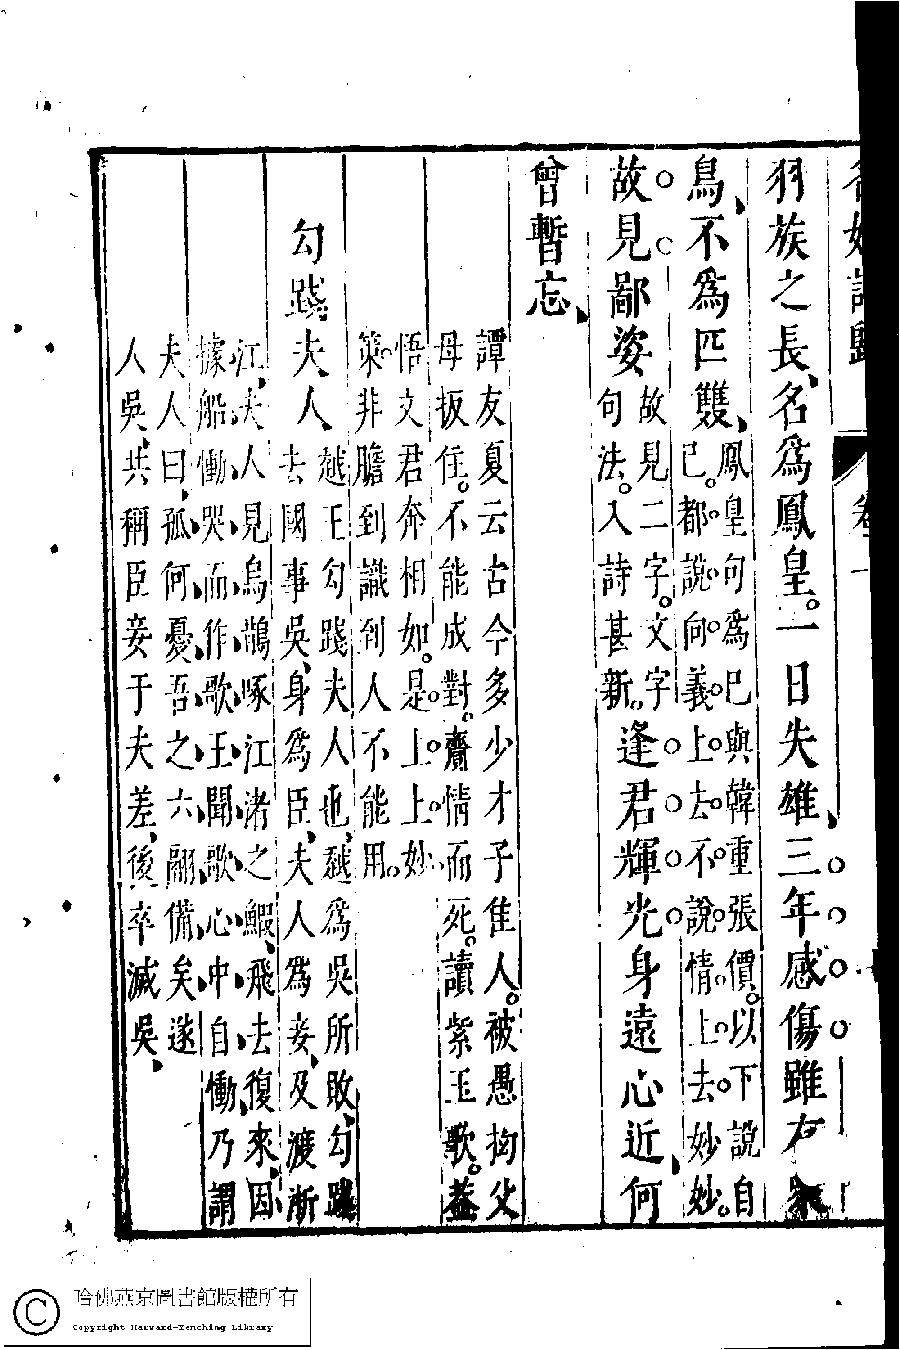 名媛詩歸 卷一
羽族之長名為鳳皇一日失雄三年感傷雖有衆
鳥不為匹雙鳳皇句為已與韓重張價以下說自已都說向義上去不說情上去妙妙
故見鄙姿故見二字文字句法入詩甚新逢君輝光身遠心近何
曾暫忘
譚友夏云古今多少才子隹人被愚拗父
母扳住不能成對齎情而死讀紫玉歌益
悟文君奔相如是上上妙
策非膽到識到人不能用
勾踐夫人越王勾踐夫人也越為吳所敗勾踐去國事吳身為臣夫人為妾及渡浙
江夫人見烏鵲啄江渚之鰕飛去復來因
據船慟哭而作歌王聞歌心中自慟乃謂
夫人曰孤何憂吾之六翮備矣遂
人吳共稱臣妾于夫差後卒滅吳
哈佛燕京圖書館版權所有
Copyright Harvard-Yenching Library